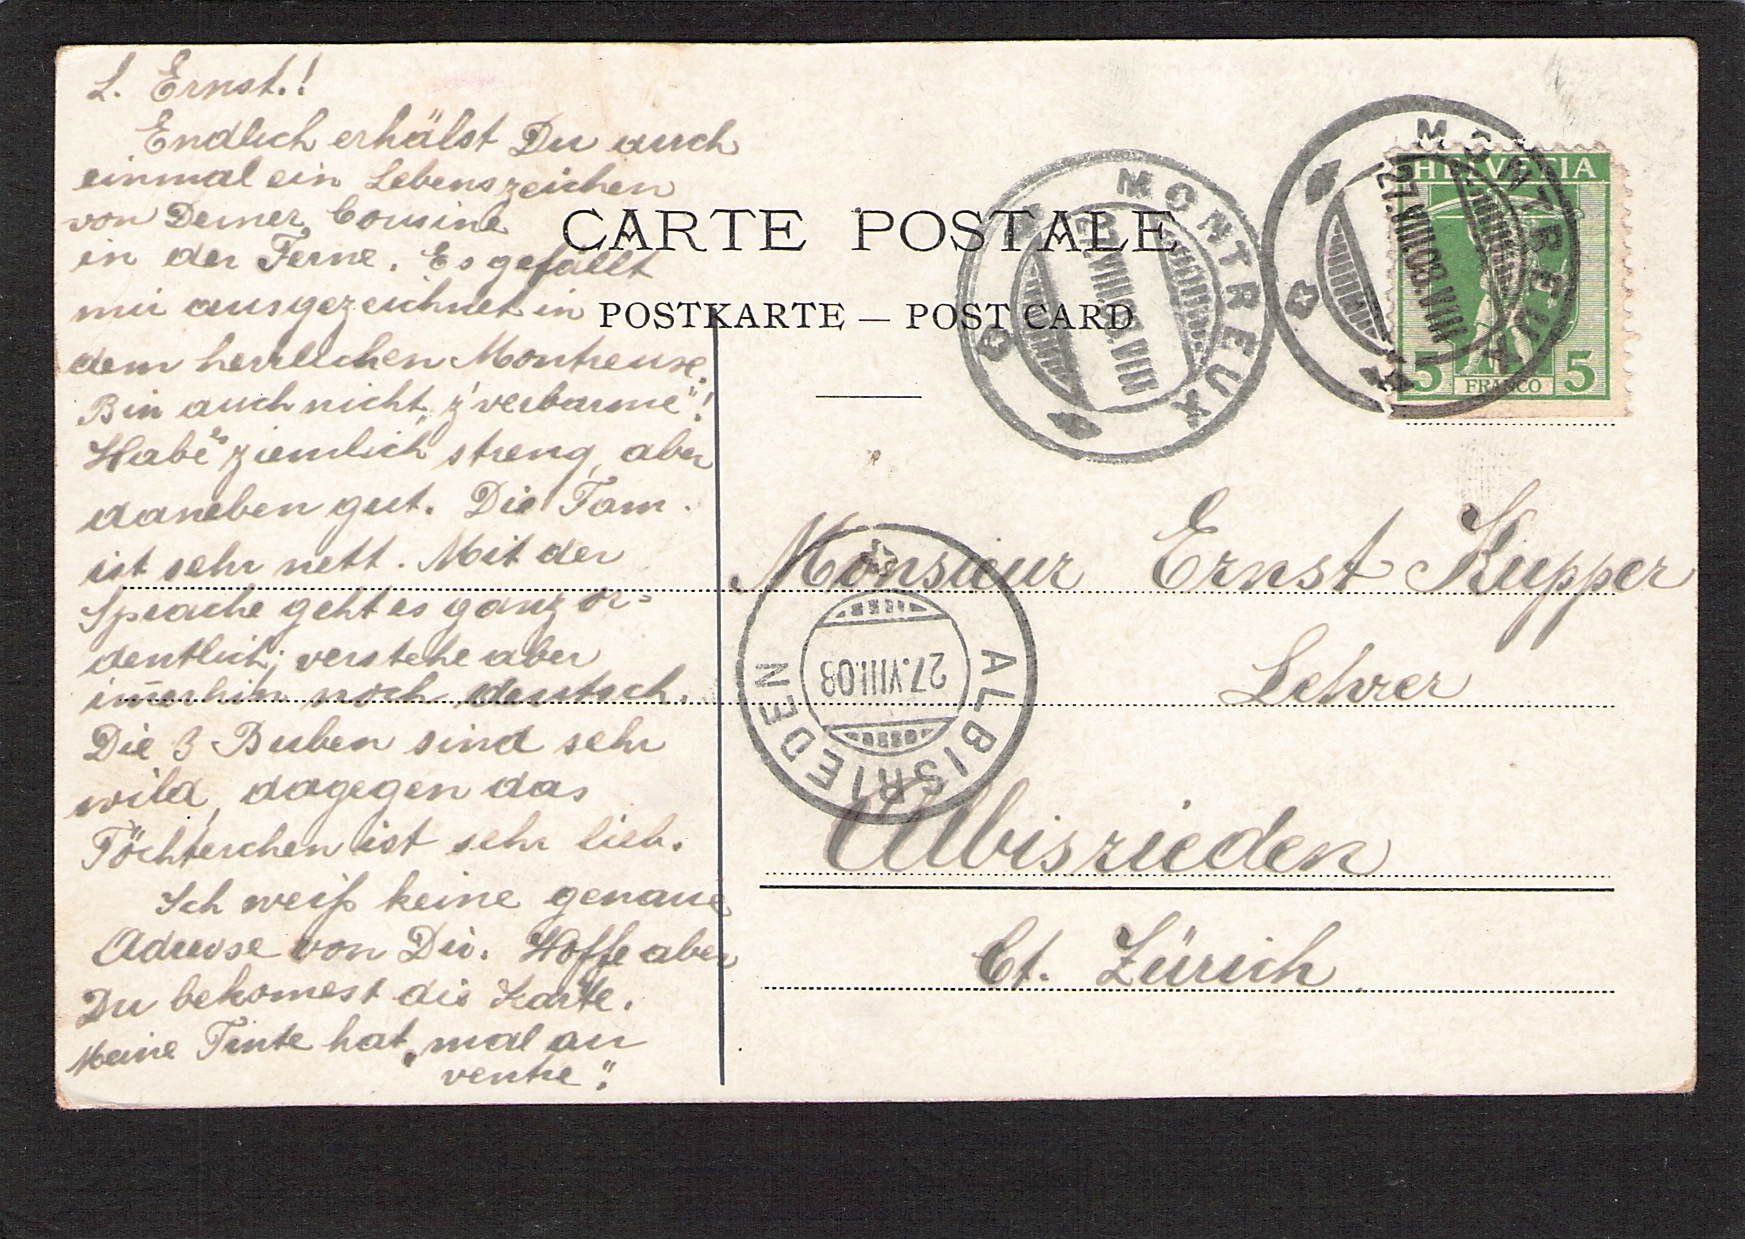 L. Ernst.!
Endlich erhälst Du auch
einmal ein Lebenszeichen
von Deiner Cousine
in der Ferne. Es gefällt
mir ausgezeichnet in
dem herrlichen Montreux.
Bin auch nicht „z'verbarme"!
Habe ziemlich streng, aber
daneben gut. Die Fam.
ist sehr nett. Mit der
Sprache geht es ganz or=
dentlich; verstehe aber
im̅erhin noch deutsch.
Die 3 Buben sind sehr
wild, dagegen das
Töchterchen ist sehr lieb.
Ich weiß keine genaue
Adresse von Dir. Hoffe aber
Du bekomest die Karte.
Meine Tinte hat „mal au
ventre".
CARTE POSTALE
POSTKARTE — POST CARD
MONTREUX
27.VIII.08
MONTREUX
27.VIII.08
HELVETIA
5 FRANCO 5
Monsieur Ernst Kupper
Lehrer
Albisrieden
Ct. Zürich
ALBISRIEDEN
27.VIII.08